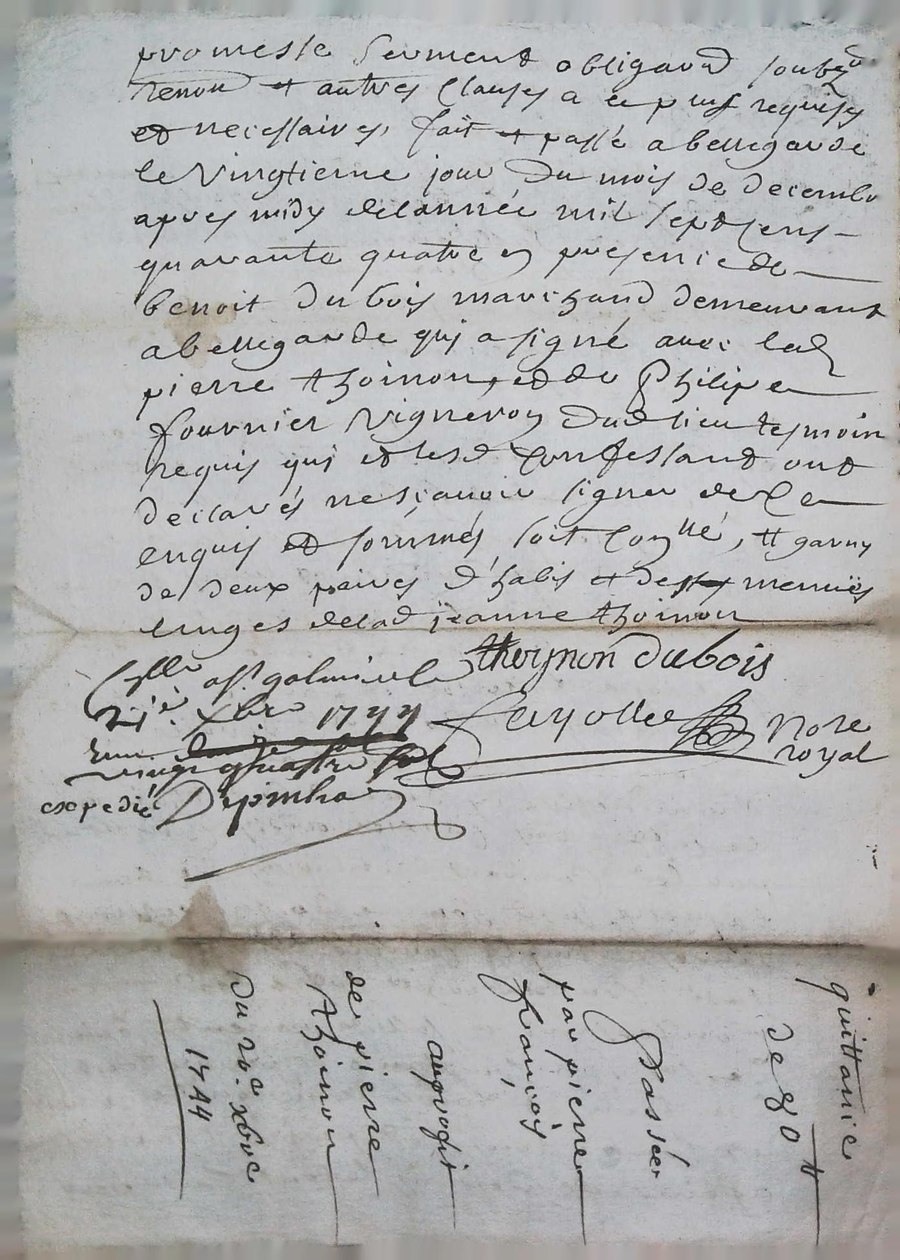 promesse serment obligaon soubzon
renon et autres clauses a ce plus requises
et necessaires, fait et passé a bellegarde
le vingtieme jour du mois de decembr
apres midy delannée mil septcens
quarante quatre en presence de
benoit dubois marchand demeurant
a bellegarde qui a signé avec led
pierre thoinon, et de Philipe
fournier vigneron dud lieu tesmoin
requis qui et lesd confessant ont
declarés nescavoir signer de ce
enquis et sommés soit conllé, tt garny
de deux paires d'habis et de menues
linges delad jeanne thoinon
thoynon dubois
Cllé a st galmier le
21e. xbre 1744
vingt quattre sol
expedié
Fayolle Nore
royal
quittance
de 80 tt
Passée
par pierre
françois
auprofit
de pierre
thoinon
du 20e xbre
1744